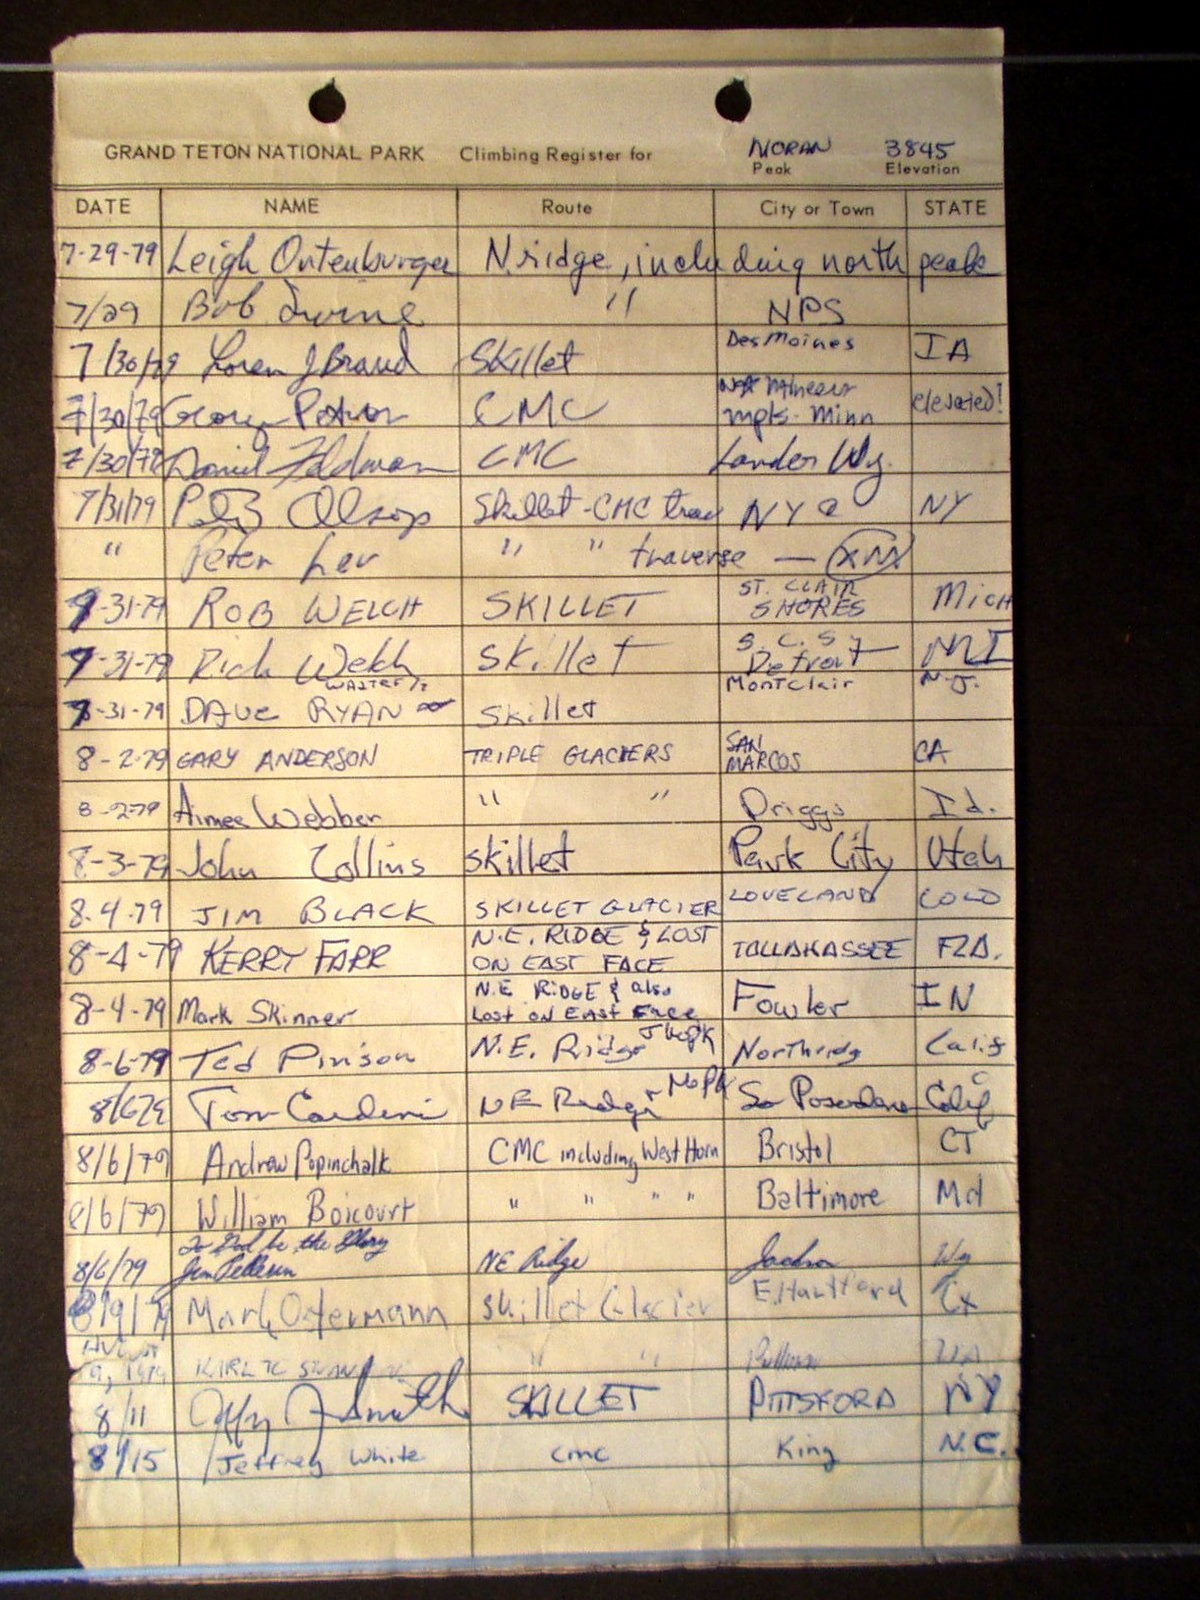 GRAND TETON NATIONAL PARK Climbing Register for MORAN 3845
Peak Elevation
DATE NAME Route City or Town STATE
7-29-79 Leigh Ortenburger N. ridge, including north peak
7/29 Bob Irvine " NPS
7/30/79 Loren J Braud Skillet Des Moines IA
7/30/79 George CMC mpls. Minn elevated!
7/30/79 Daniel Feldman CMC Lander Wy.
7/31/79 Alsop Skillet-CMC trav NYC NY
" Peter Lev " " traverse —
7-31-79 ROB WELCH SKILLET ST. CLAIR SHORES MICH
7-31-79 Rich Welch Skillet S.C.S Detroit MI
7-31-79 DAVE RYAN Skillet Montclair N.J.
8-2-79 GARY ANDERSON TRIPLE GLACIERS SAN MARCOS CA
8-2-79 Aimee Webber " " Driggs Id.
8-3-79 John Collins skillet Park City Utah
8.4.79 JIM BLACK SKILLET GLACIER LOVELAND COLO
8-4-79 KERRY FARR N.E. RIDGE & LOST ON EAST FACE TALLAHASSEE FLA.
8-4-79 Mark Skinner N.E RIDGE & also Lost on East Face Fowler IN
8-6-79 Ted Pinson N.E. Ridge Northridg Calif
8/6/79 Tom NE Ridge So Pasadena Calif
8/6/79 Andrew Popinchalk CMC including West Horn Bristol CT
8/6/79 William Boicourt " " " " Baltimore Md
To God be the Glory
8/6/79 Jim NE Ridge Jackson Wy
8/9/79 Mark Ostermann Skillet Glacier E. Hartford Ct
9, 1979 KARL " " Pullman WA
8/11 Smith SKILLET PITTSFORD NY
8/15 Jeffrey White cmc King N.C.